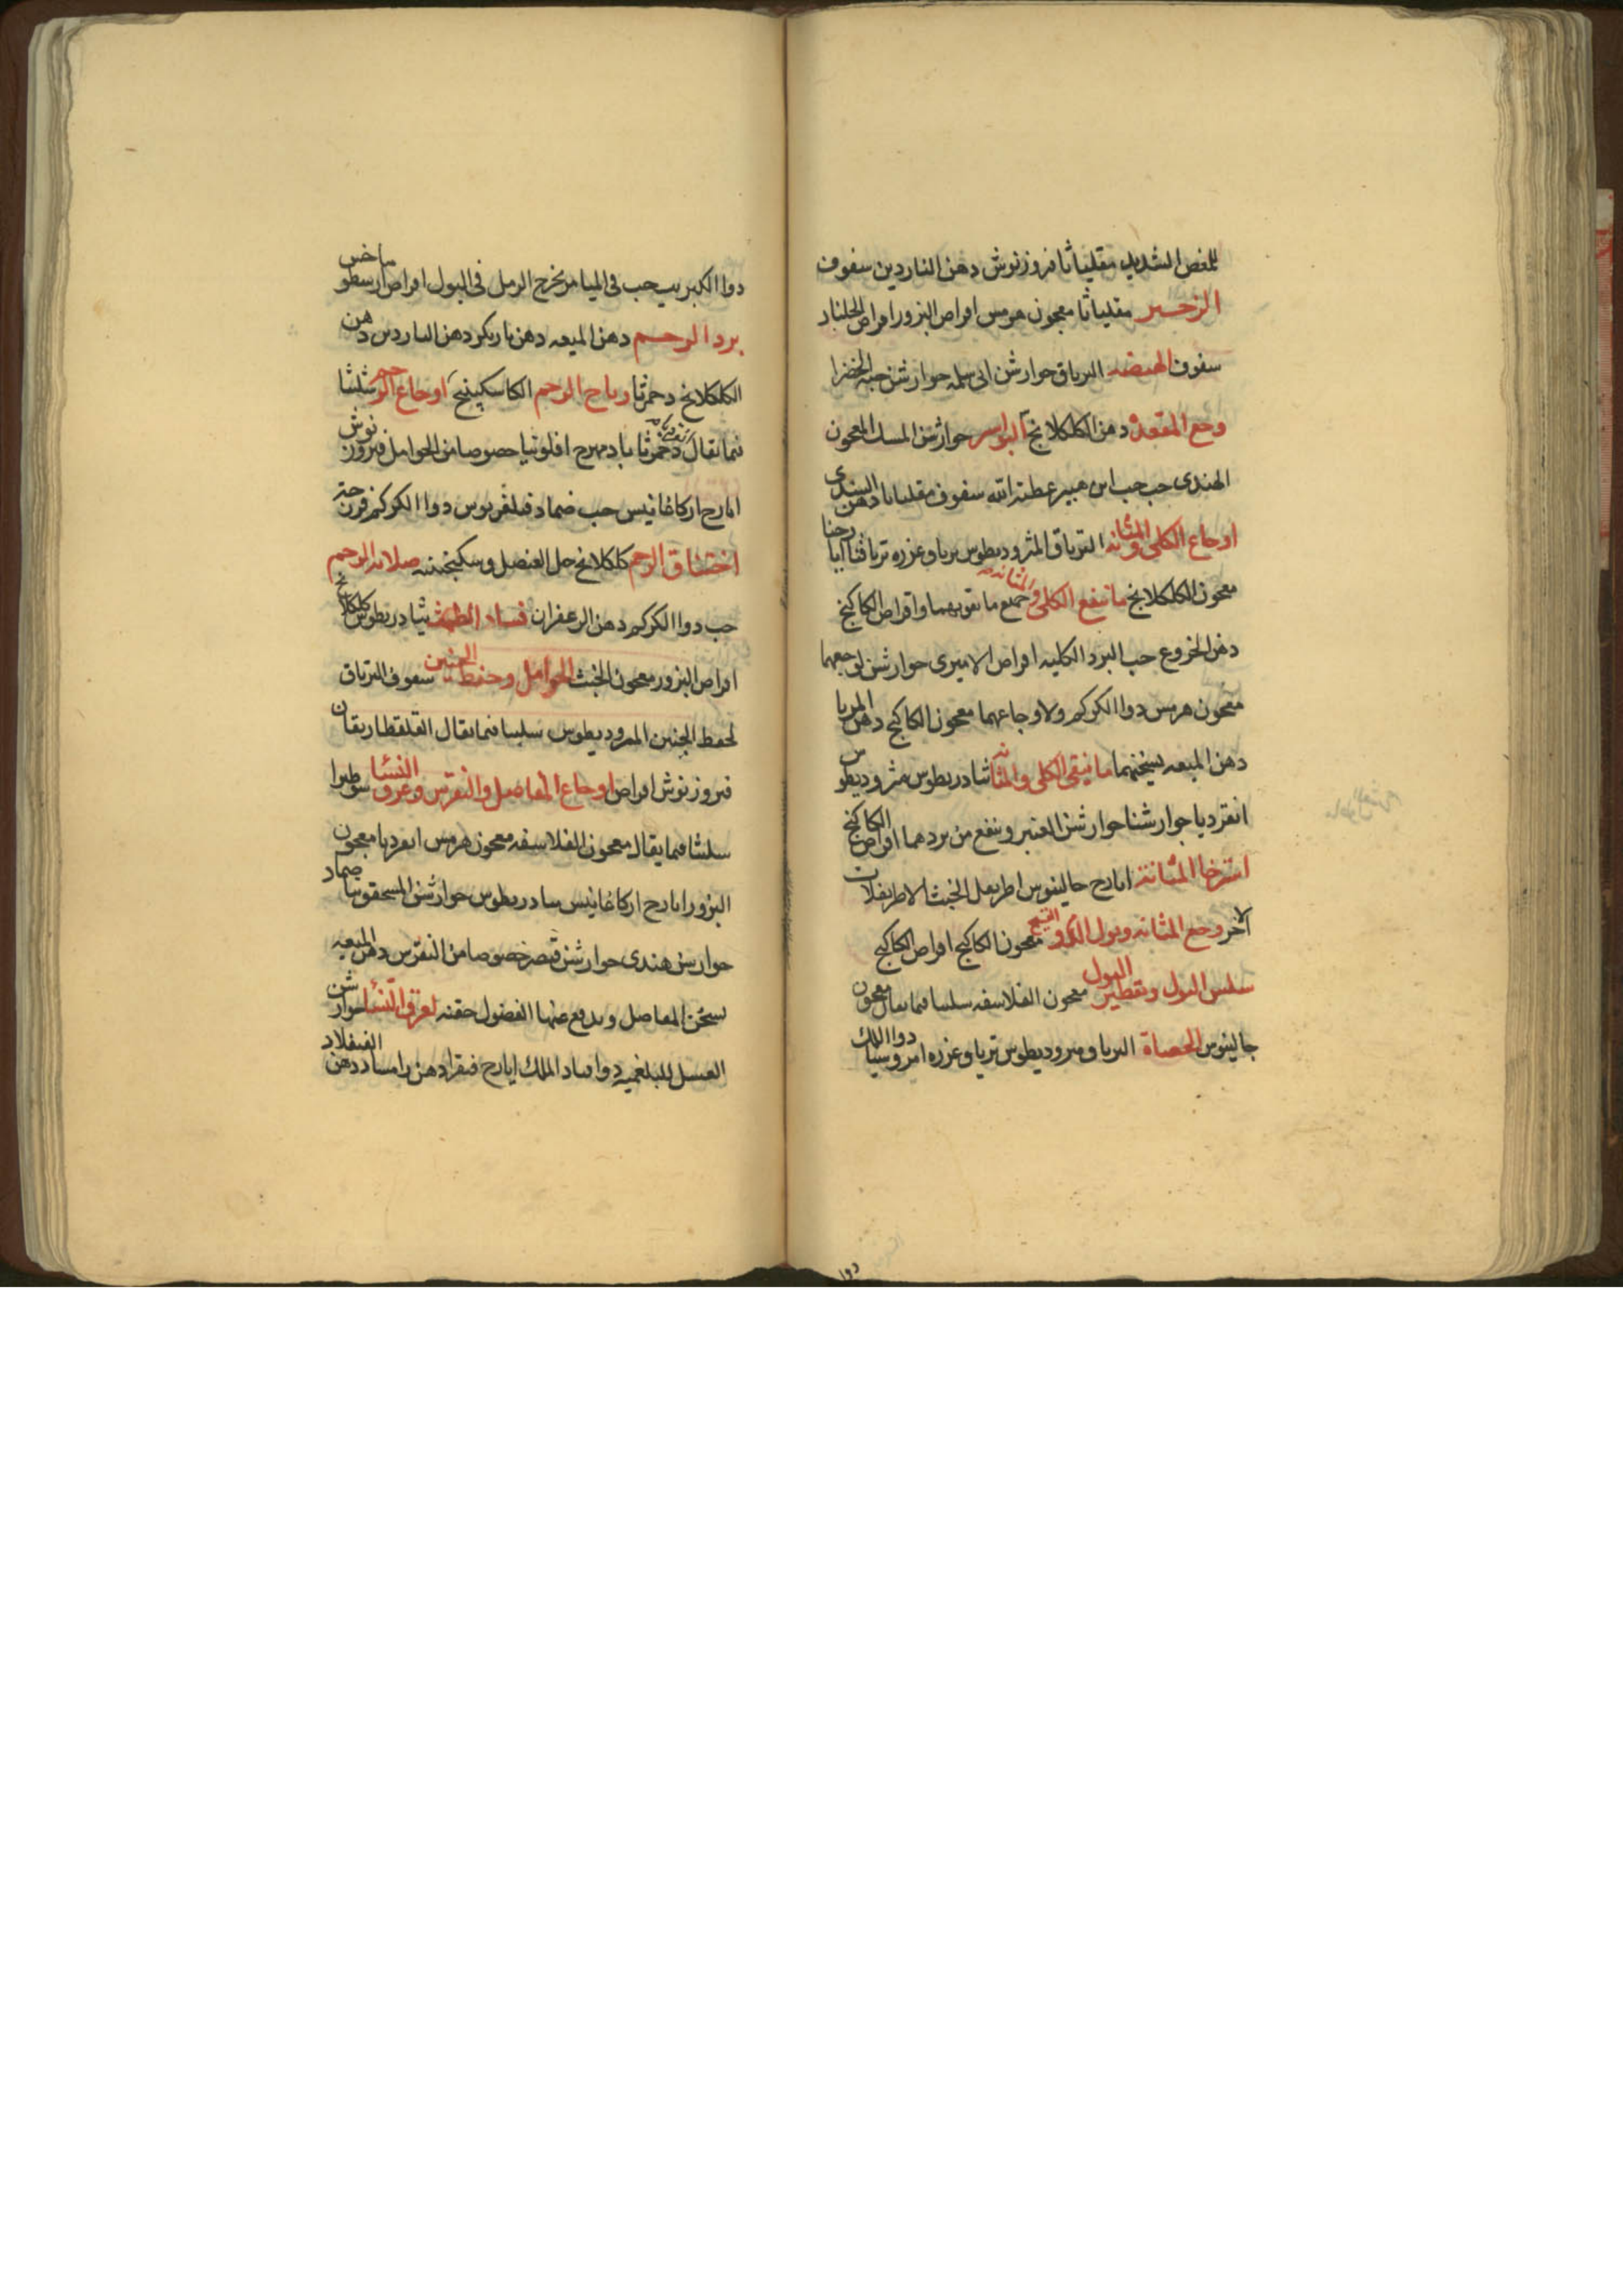 للمغص الشديد مقلياثا فيروزنوش دهن الناردين سفوف
الزحير مقلياثا معجون هرمس اقراص البزور اقراص الجلنار
سفوف الهيضه الترياق جوارشن ابى سلمه جوارشن حبه الخضرا
وجع المقعده دهن الكلكلانج البواسير جوارشن المسك المعجون
الهندى حب حب ابن هبير عطية الله سفوف مقلياثا دهن السندى
اوجاع الكلى والمثانه الترياق المثروديطوس ترياق عزره ترياقنا ايارجنا
معجون الكلكلانج ما ينفع الكلى والمثانه جميع ما يقويهما واقراص الكاكنج
دهن الخروع حب البرد الكليه اقراص الاميرى جوارشن لوجعهما
معجون هرمس دوا الكركم ولاوجاعهما معجون الكاكنج دهن المربا
دهن الميعه يسخنهما ما ينقى الكلى والمثانه ثيادريطوس مثروديطوس
انقرديا جوارشنا جوارشن العنبر وينفع من بردهما اقراص الكاكنج
استرخا المثانة ايارج جالينوس اطريفل الخبث الاطريفلات
الاخر وجع المثانه وبول الدم والقيح معجون الكاكنج اقراص الكاكنج
سلس البول وتقطير البول معجون الفلاسفه سليثا فيما يقال معجون
جالينوس الحصاة الترياق مثروديطوس ترياق عزره امروسيا دوا الملك
دوا
دوا الكبريت حب فى الميامر يخرج الرمل فى البول اقراص ارسطوماخس
برد الرحم دهن الميعه دهن ناريكر دهن الناردين دهن
الكلكلانج دحمرثا رياح الرحم الكاسكبينج اوجاع الرحم شليثا
فيما يقال دحمرثا بادمهرج افلونيا خصوصا من الحوامل فيروزنوش
ايارج اركاغانيس حب ضماد فيلغريوس دوا الكركم فرزجة
اختناق الرحم كلكلانج خل العنصل وسكنجبينه صلابه الرحم
حب دوا الكركم دهن الزعفران فساد الطمث ثيادريطوس كلكلانج
اقراص البزور معجون الخبث الحوامل وحفظ الجنين سفوف الترياق
لحفظ الجنين المثروديطوس سليثا فيما يقال القلقطاريقان
فيروزنوش اقراص اوجاع المفاصل والنقرس وعرق النسا سوطيرا
سليثا فيما يقال معجون الفلاسفه معجون هرمس انقرديا معجون
البزور ايارج اركاغانيس ثيادريطوس جوارشن المسحقونيا ضماد
جوارشن هندى جوارشن قيصر خصوصا من النقرس دهن الميعه
يسخن المفاصل ويدفع عنها الفضول حقنه لعرق النسا جوارشن
العسل للبلغميه دوا قباد الملك ايارج فيقرا دهن راسا دهن القيقلاد